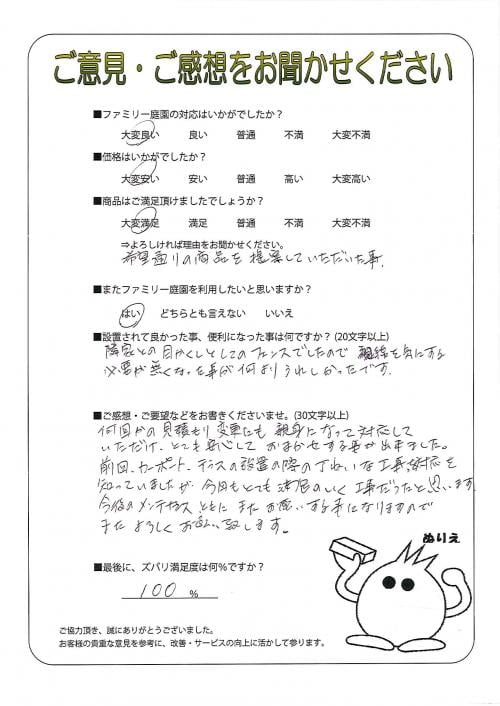 ご意見・ご感想をお聞かせください
■ファミリー庭園の対応はいかがでしたか？
大変良い 良い 普通 不満 大変不満
■価格はいかがでしたか？
大変安い 安い 普通 高い 大変高い
■商品はご満足頂けましたでしょうか？
大変満足 満足 普通 不満 大変不満
⇒よろしければ理由をお聞かせください。
希望通りの商品を提案していただいた事。
■またファミリー庭園を利用したいと思いますか？
はい どちらとも言えない いいえ
■設置されて良かった事、便利になった事は何ですか？(20文字以上)
隣家との目かくしとしてのフェンスでしたので 視線を気にする
必要が無くなった事が何よりうれしかったです。
■ご感想・ご要望などをお書きくださいませ。(30文字以上)
何回かの見積もり変更にも親身になって対応して
いただけ、とても安心しておまかせする事が出来ました。
前回、カーポート、テラスの設置の際のていねいな工事、対応を
知っていましたが 今回もとても満足のいく工事だったと思います。
今後のメンテナンスともに またお願いする事になりますので
またよろしくお願い致します。
ぬりえ
■最後に、ズバリ満足度は何％ですか？
100 ％
ご協力頂き、誠にありがとうございました。
お客様の貴重な意見を参考に、改善・サービスの向上に活かして参ります。